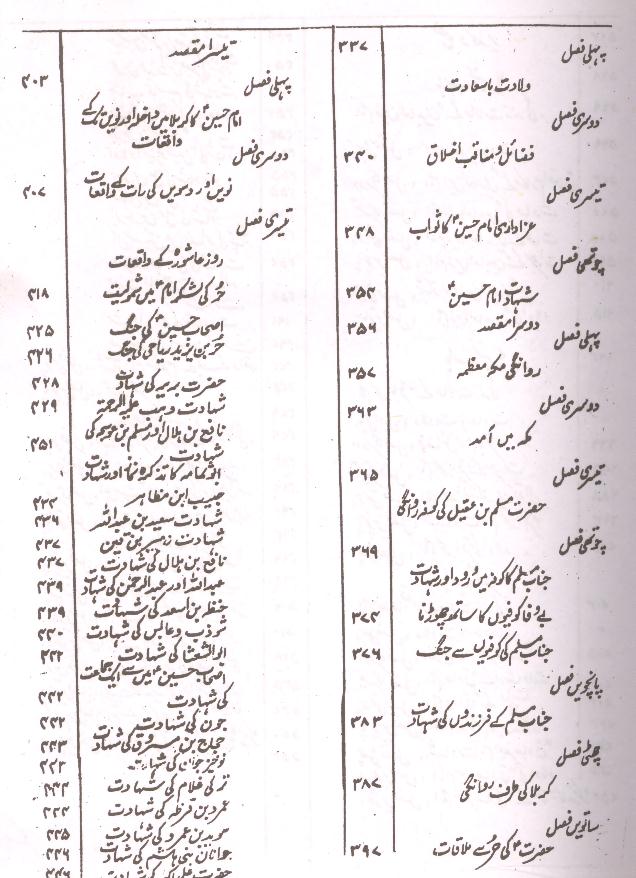 پہلی فصل ۳۳۷
ولادت باسعادت
دوسری فصل
فضائل و مناقب اخلاق ۳۴۰
تیسری فصل
عزاداری امام حسینؑ کا ثواب ۳۴۸
چوتھی فصل
شہادت امام حسینؑ ۳۵۴
دوسرا مقصد ۳۵۶
پہلی فصل
روانگی مکہ معظمہ ۳۵۷
دوسری فصل ۳۶۳
مکہ میں آمد
تیسری فصل ۳۶۵
حضرت مسلم بن عقیل کی کوفہ روانگی
چوتھی فصل ۳۶۹
جناب مسلم کا کوفہ میں ورود اور شہادت
بے وفا کوفیوں کا ساتھ چھوڑنا ۳۷۴
جناب مسلم کی کوفیوں سے جنگ ۳۷۶
پانچویں فصل
جناب مسلم کے فرزندوں کی شہادت ۳۸۳
چھٹی فصل
کربلا کی طرف روانگی ۳۸۷
ساتویں فصل
حضرتؑ کی حُر سے ملاقات ۳۹۷
تیسرا مقصد
پہلی فصل ۴۰۳
امام حسینؑ کا کربلا میں داخلہ اور نویں تک کے
واقعات
دوسری فصل
نویں اور دسویں کی رات کے واقعات ۴۰۷
تیسری فصل
روز عاشور کے واقعات
حُر کی لشکر امامؑ میں شمولیت ۴۱۸
اصحاب حسینؑ کی جنگ ۴۲۵
حُر بن یزید ریاحی کی جنگ ۴۲۶
حضرت بریر کی شہادت ۴۲۸
شہادت وہب علیہ الرحمۃ ۴۲۹
نافع بن ہلال اور مسلم بن عوسجہ کی ۴۵۱
شہادت
ابو ثمامہ کا تذکرۂ نماز اور شہادت
حبیب ابن مظاہر ۴۳۴
شہادت سعید بن عبداللہ ۴۳۶
شہادت زہیر بن قین ۴۳۷
نافع بن ہلال کی شہادت ۴۳۷
عبداللہ اور عبدالرحمٰن کی شہادت ۴۳۹
حنظلہ بن اسعد کی شہادت ۴۳۹
شوذب و عابس کی شہادت ۴۴۰
ابو الشعثا کی شہادت ۴۴۲
اصحاب حسینؑ میں سے ایک جماعت
کی شہادت ۴۴۲
جون کی شہادت ۴۴۲
حجاج بن مسروق کی شہادت ۴۴۳
نوخیز جوان کی شہادت ۴۴۳
ترکی غلام کی شہادت ۴۴۴
عمرو بن قرظہ کی شہادت ۴۴۴
سوید بن عمرو کی شہادت ۴۴۵
جوانان بنی ہاشم کی شہادت ۴۴۶
کی شہادت ۴۴۶